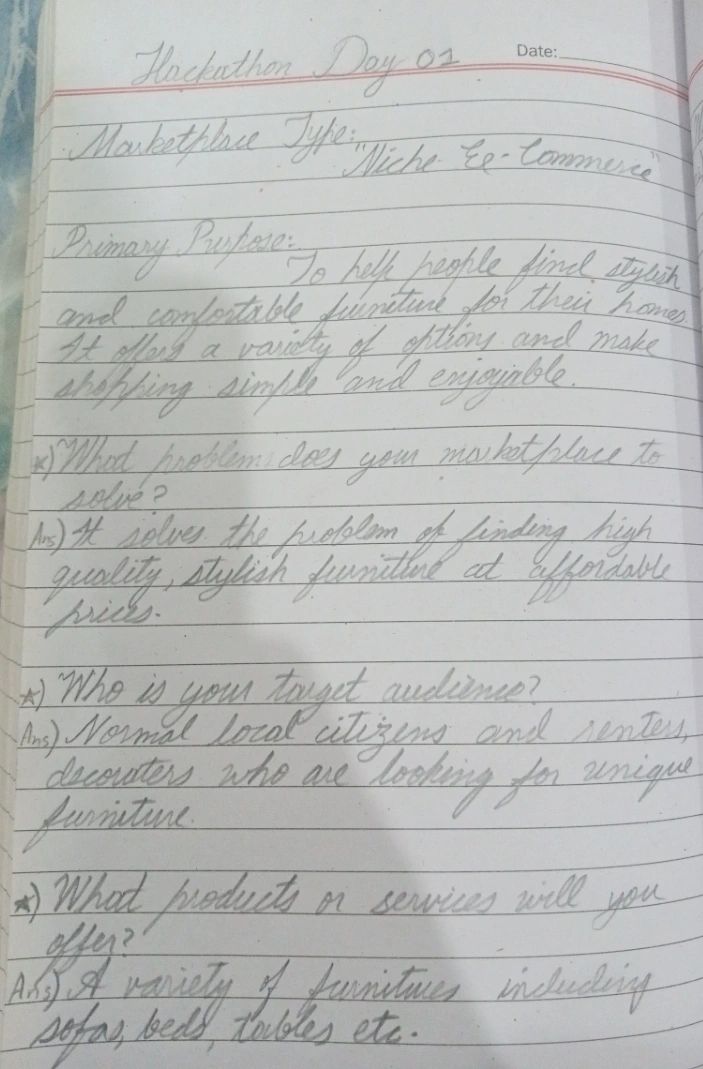 Hackathon Day 01
Date:
Marketplace Type:
"Niche Ee-Commerce"
Primary Purpose:
To help people find stylish
and comfortable furniture for their homes
It offers a variety of options and make
shopping simple and enjoyable.
*) What problems does your marketplace to
solve?
Ans) It solves the problem of finding high
quality, stylish furniture at affordable
prices.
*) Who is your target audience?
Ans) Normal local citizens and renters,
decoraters who are looking for unique
furniture.
*) What products or services will you
offer?
Ans) A variety of furnitures including
sofas, beds, tables etc.